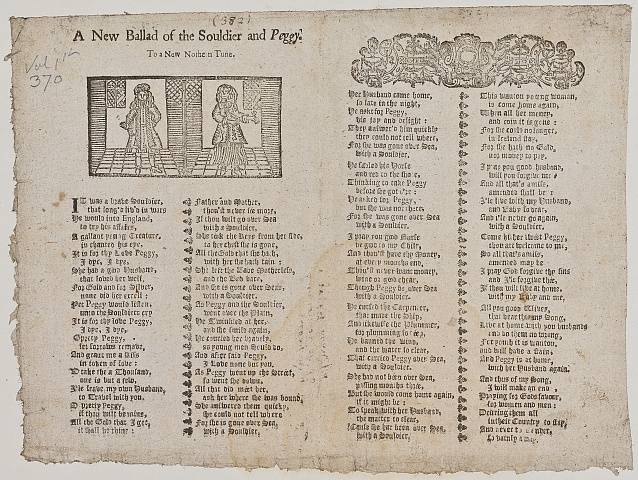 (382)
A New Ballad of the Souldier and Peggy.
To a New Nothern Tune.
370
IT was a brave Souldier,
that long liv'd in wars
He would into England,
to try his affairs,
A gallant young Creature,
is chanced his eye.
It is for thy Love Peggy,
I dye, I dye.
She had a good Husband,
that loved her well,
For Gold and for Silver,
none did her excell:
Yet Peggy would listen,
unto the Souldiers cry
It is for thy love Peggy,
I dye, I dye,
O pretty Peggy,
let sorrows remove,
And grant me a kiss
in token of love:
O take the a Thousand,
one is but a few,
I'le leave my own Husband,
to Travel with you.
O pretty Peggy,
if thou wilt be mine,
All the Gold that I get,
it shall be thine:
Father and Mother,
thou'd never see more,
If thou wilt go over Sea
with a Souldier.
She took the Keys from her side,
to her chest she is gone,
All the Gold that she hath,
with her she hath tane:
She left the Babe Motherless,
and the Bed bare,
And she is gone over Sea,
with a Souldier.
As Peggy and the Souldier,
went over the Plain,
He Smiled at her,
and she smil'd again;
He courted her bravely,
so young men should do,
And after said Peggy,
I Love none but you.
As Peggy went up the Street,
so went she down,
All that did meet her,
ask her where she was bound,
She answered them quickly,
she could not tell where
For she is gone over Sea,
with a Souldier,
Her Husband came home,
so late in the night,
He askt for Peggy,
his joy and delight:
They answer'd him quickly
they could not tell where,
For she was gone over Sea,
with a Souldier.
He sadled his Horse
and rod to the shore,
Thinking to take Peggy
before she got o're:
He asked for Peggy,
but she was not there,
For she was gone over Sea
with a Souldier.
I pray you good Nurse
be good to my Child,
And thou'lt have thy Money,
at every months end,
Thou'lt never want money,
wine or good chear,
Though Peggy be over Sea
with a Souldier.
He cursed the Carpenter,
that made the Ship,
And likewise the Plummer,
for plumming so deep,
He banned the wind,
and the water so clear,
That carried Peggy over Sea,
with a Souldier.
She had not been over Sea,
passing months three,
But she would come home again,
if it might be:
To speak with her Husband,
the matter to clear,
'Cause she has been over Sea,
with a Souldier,
This wanton young woman,
is come home again,
When all her money,
and coin it is gone:
For she could no longer,
in Ireland stay,
For she hath no Gold,
nor money to pay.
I pray you good husband,
will you forgive me
And all that's amiss,
amended shall be:
I'le live with my Husband,
and Baby so dear,
And I'le never go again,
with a Souldier.
Come kiss me sweet Peggy,
thou art welcome to me,
So all that's amiss,
amended may be
I pray God forgive thy sins
and I'le forgive thee,
If thou wilt live at home,
with my Baby and me,
All you good Wives,
that hear this my Song,
Live at home with you husbands
and do them no wrong,
For youth it is wanton,
and will have a stain
And Peggy is at home,
with her Husband again.
And thus of my Song,
I will make an end
Praying for Gods favour,
for women and men:
Desiring them all
in their Country to stay,